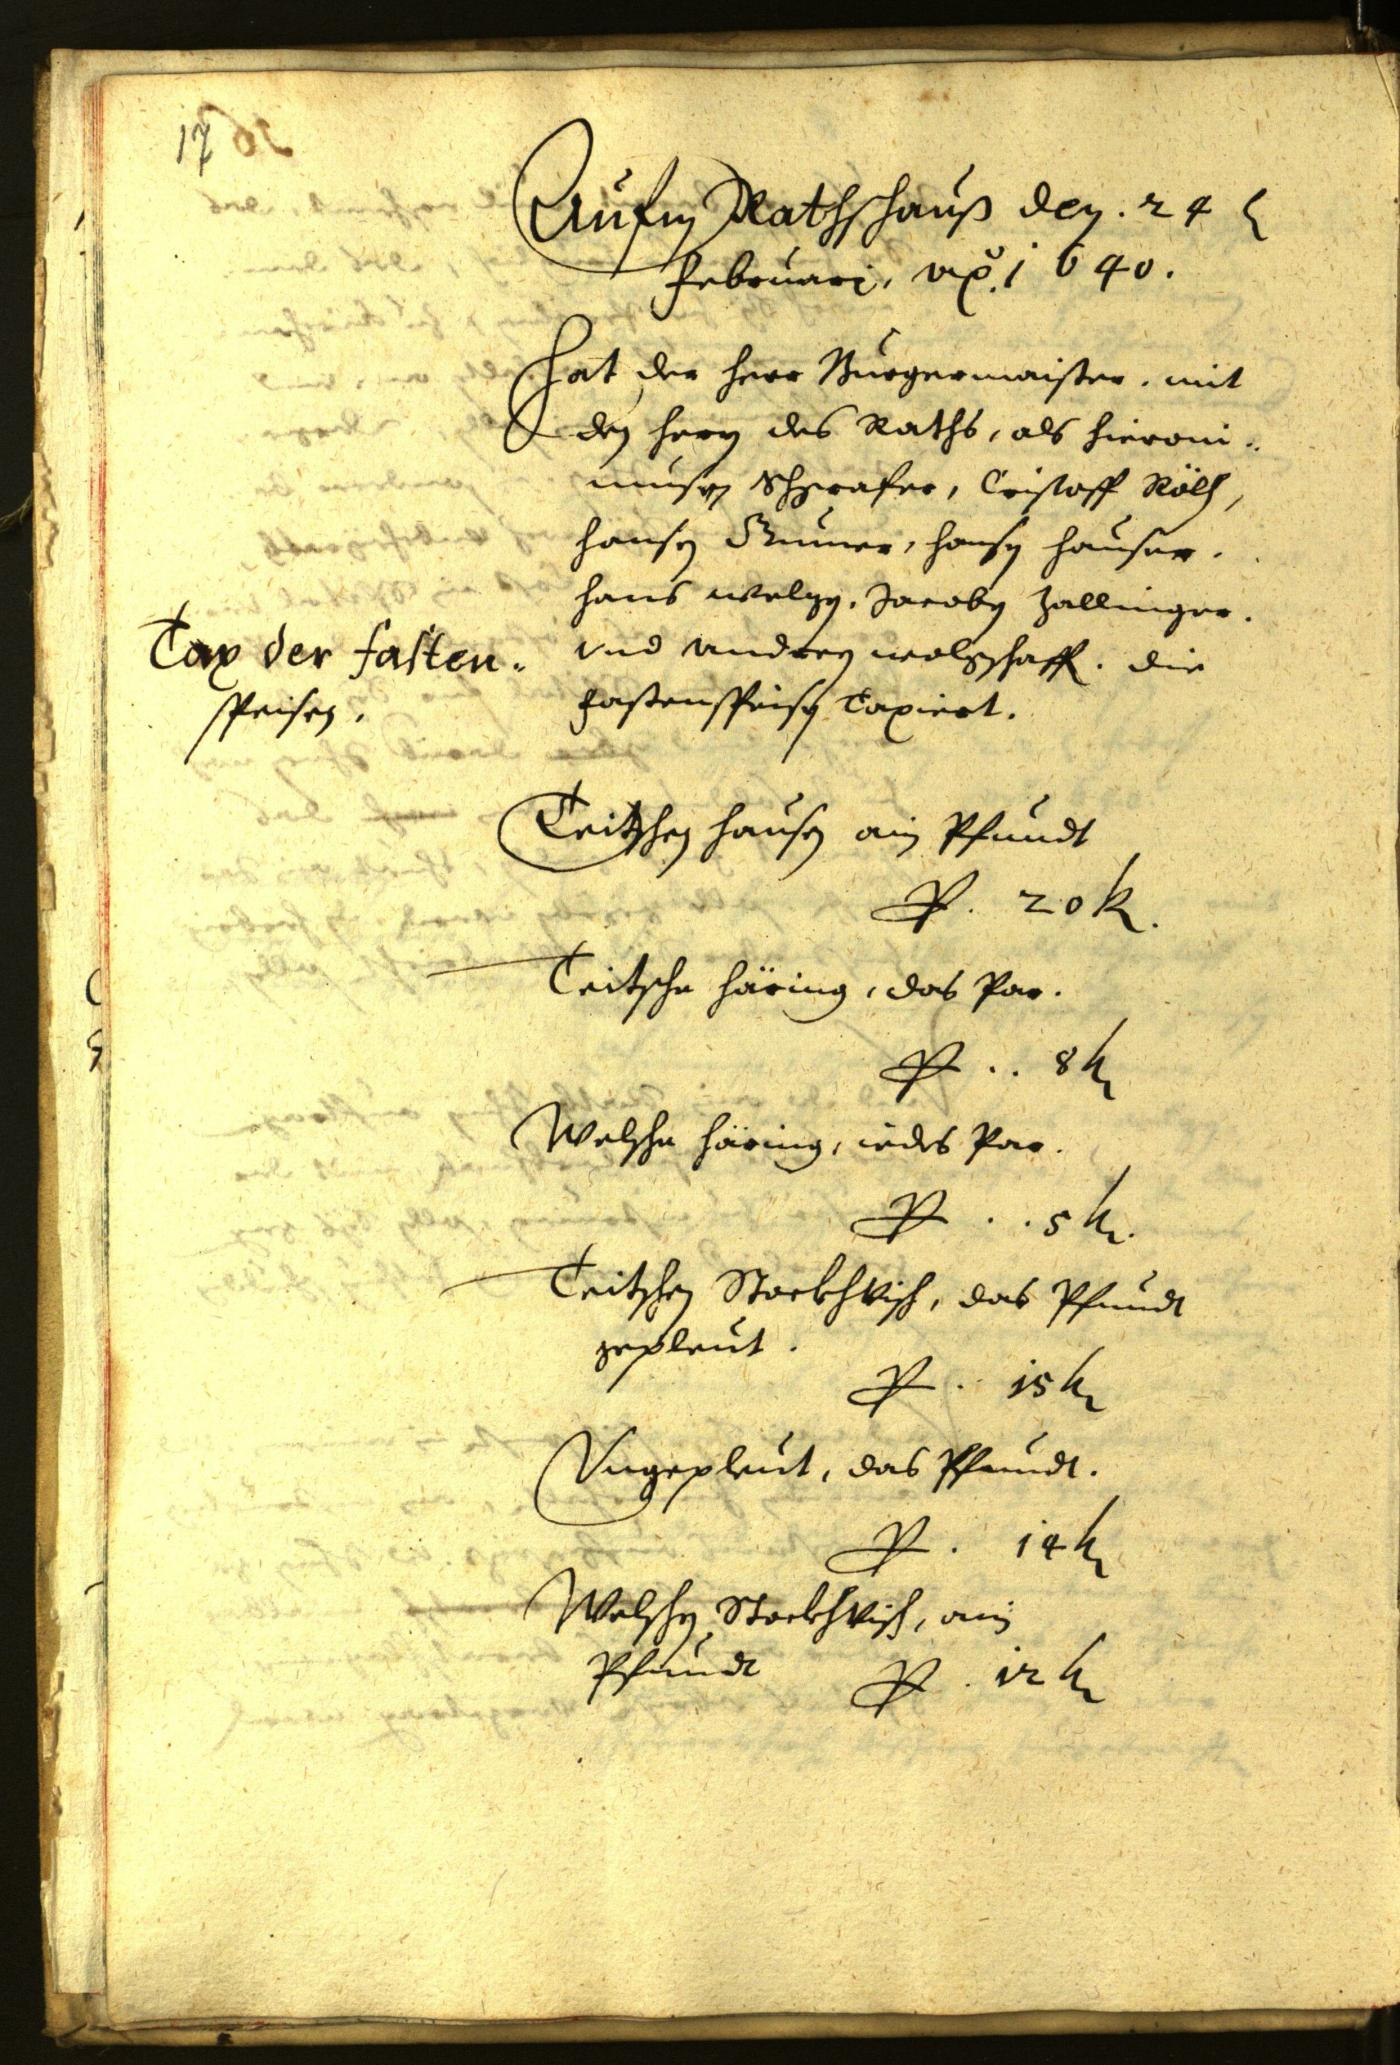 17
Aufm Rathshauß den . 24
Februari, Ao. 1640.
Hat der Herr Burgermaister . mit
den hern des Raths, als Hieroni-
musen Schgrafer, Cristoff Rölh,
Hansen Gumer, Hansen Hauser.
Hans Welzn, Jacoben Zallinger.
vnd andern wolzhaff. die
Fastenspeisen Taxiert.
Tax der fasten-
speisen.
Teitschen Hausen ain Pfundt
P. 20 k.
Teitsche Häring, das Par.
P .. 8 k
Welsche Häring, iedes Par.
P . . 5 k.
Teitschen Stockhvisch, das Pfundt
gepleut.
P . 15 k
Vngepleut, das Pfundt.
P . 14 k
Welschen Stockhvisch, ain
Pfundt P . 12 k